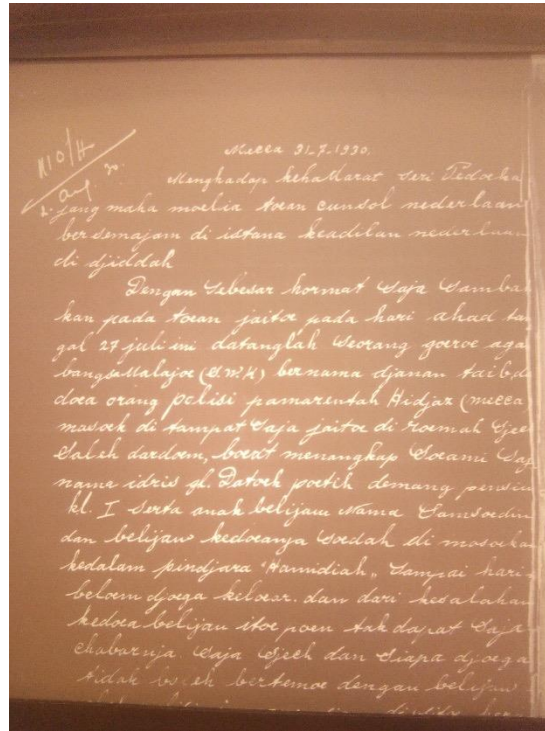 Mecca 31-7-1930.
Menghadap kehallarat seri Padoeka
jang maha moelia toean cunsol nederlaan
bersemajam di istana keadilan nederlaan
di djiddah
Dengan sebesar hormat saja samba
kan pada toean jaitoe pada hari ahad tan
gal 27 juli ini datanglah seorang goeroe aga
bangsa Malajoe (S.W.K) bernama djanan taib d
doea orang polisi pamarentah Hidjaz (mecca)
masoek di tampat saja jaitoe di roemah Sjec
Saleh dardoem, boeat menangkap Soeami Saja
nama idris gl. Datoek poetih demang pensiu
kl. I serta anak belijau nama Samsoedin
dan belijau kedoeanja soedah di masoeka
kedalam pindjara "Hamidiah„ sampai hari
beloem djoega keloear. dan dari kesalahan
kedoea belijau itoe poen tak dapat saja
chabarnja saja Sjech dan siapa djoega
tidak boleh bertemoe dengan belijau